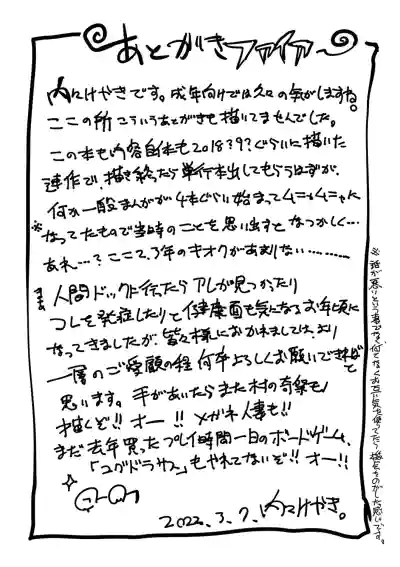 あとがきファイア〜
内々けやきです。成年向けでは久々の気がしますね。
ここの所こういうあとがきも描いてませんでした。
この本も内容自体も2018?9?ぐらいに描いた
連作で、描き終ったら単行本出してもらうはずが、
何か一般まんがが4本ぐらい始まってムニャムニャに
※なってたもので当時のことを思い出すとなつかしく…
あれ…?ここ2、3年のキオクがあまりない…………
まぁ人間ドック行ったらアレが見つかったり
コレを発症したりと健康面も気になるお年頃に
なってきましたが、皆々様におかれましては、より
一層のご愛顧の程何卒よろしくお願いできればと
思います。手があいたらまた村の奇祭も
描くぞ!!オー!!メガネ人妻も!!
まだ去年買ったプレイ時間一日のボードゲーム、
「ユグドラサス」もやれてないぞ!!オー!!
2022.3.7.内々けやき。
※話が悪いという事でなく、何となくお互いに気を使ってたら